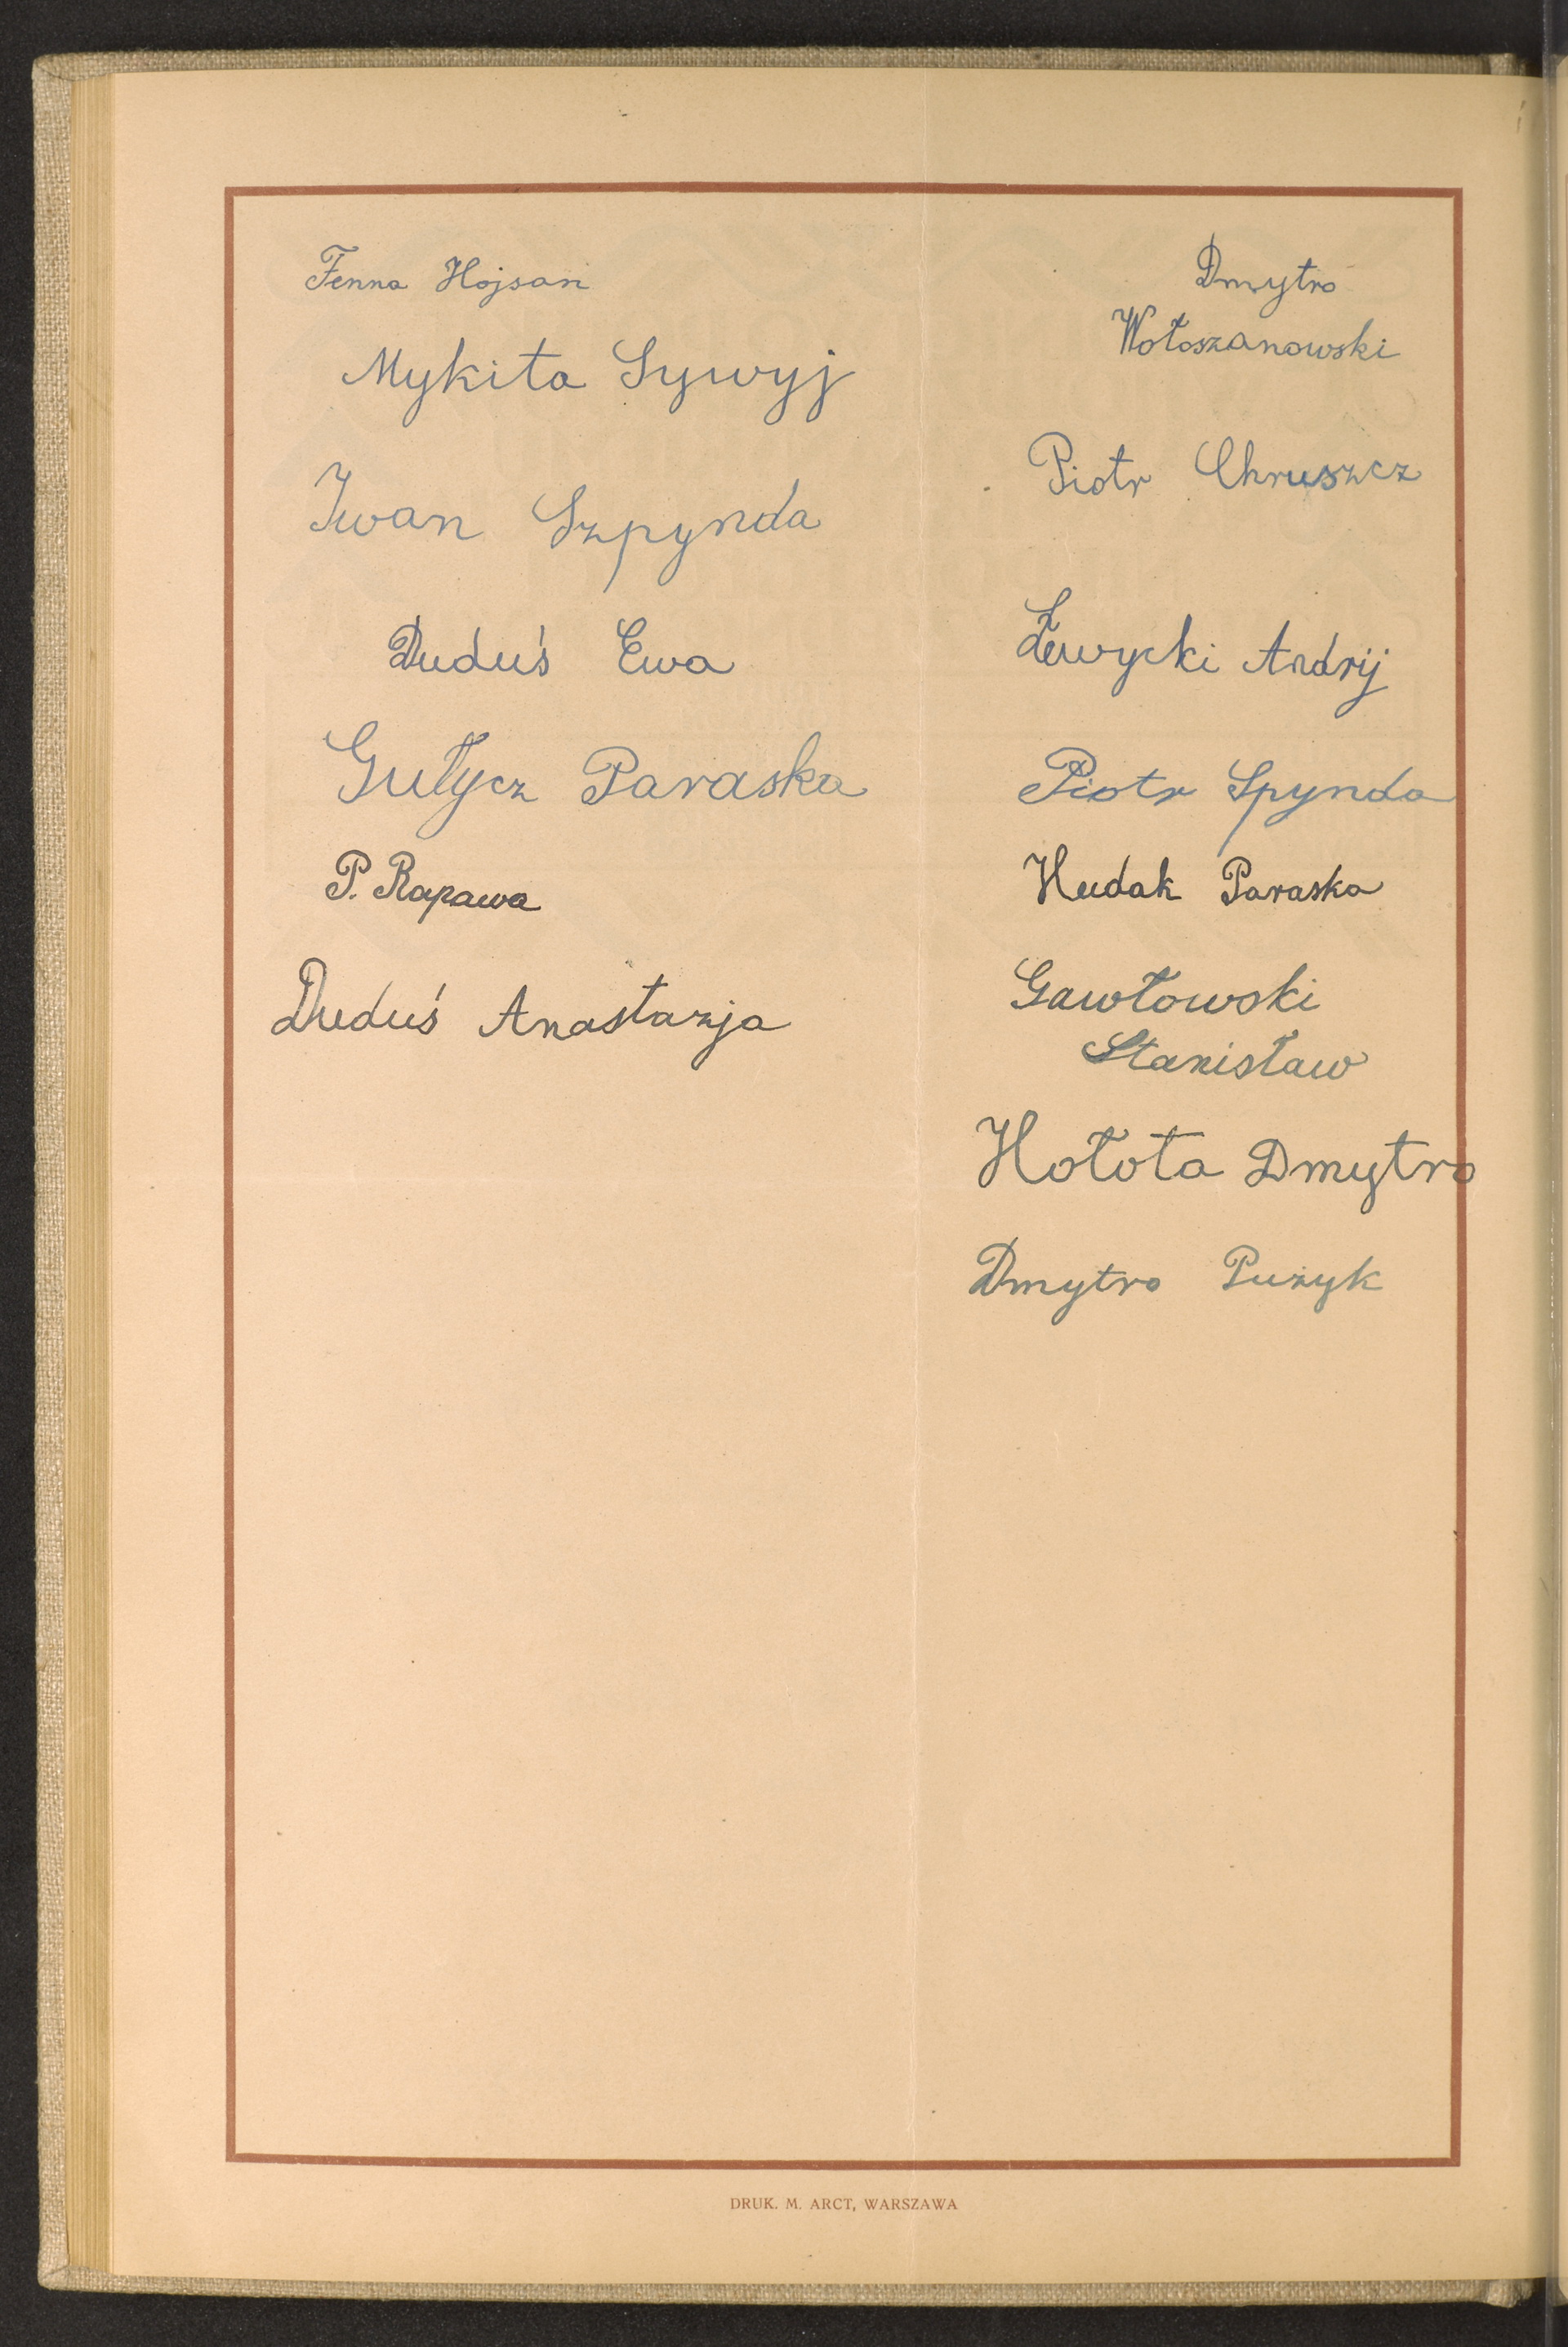 Fenna Hojsan
Mykita Sywyj
Iwan Szpynda
Duduś Ewa
Gułycz Paraska
P. Rapawa
Duduś Anastazja
Dmytro
Wołoszanowski
Piotr Chruszcz
Lewycki Andrij
Piotr Spynda
Hudak Paraska
Gawłowski
Stanisław
Hołota Dmytro
Dmytro Puzyk
DRUK. M. ARCT, WARSZAWA